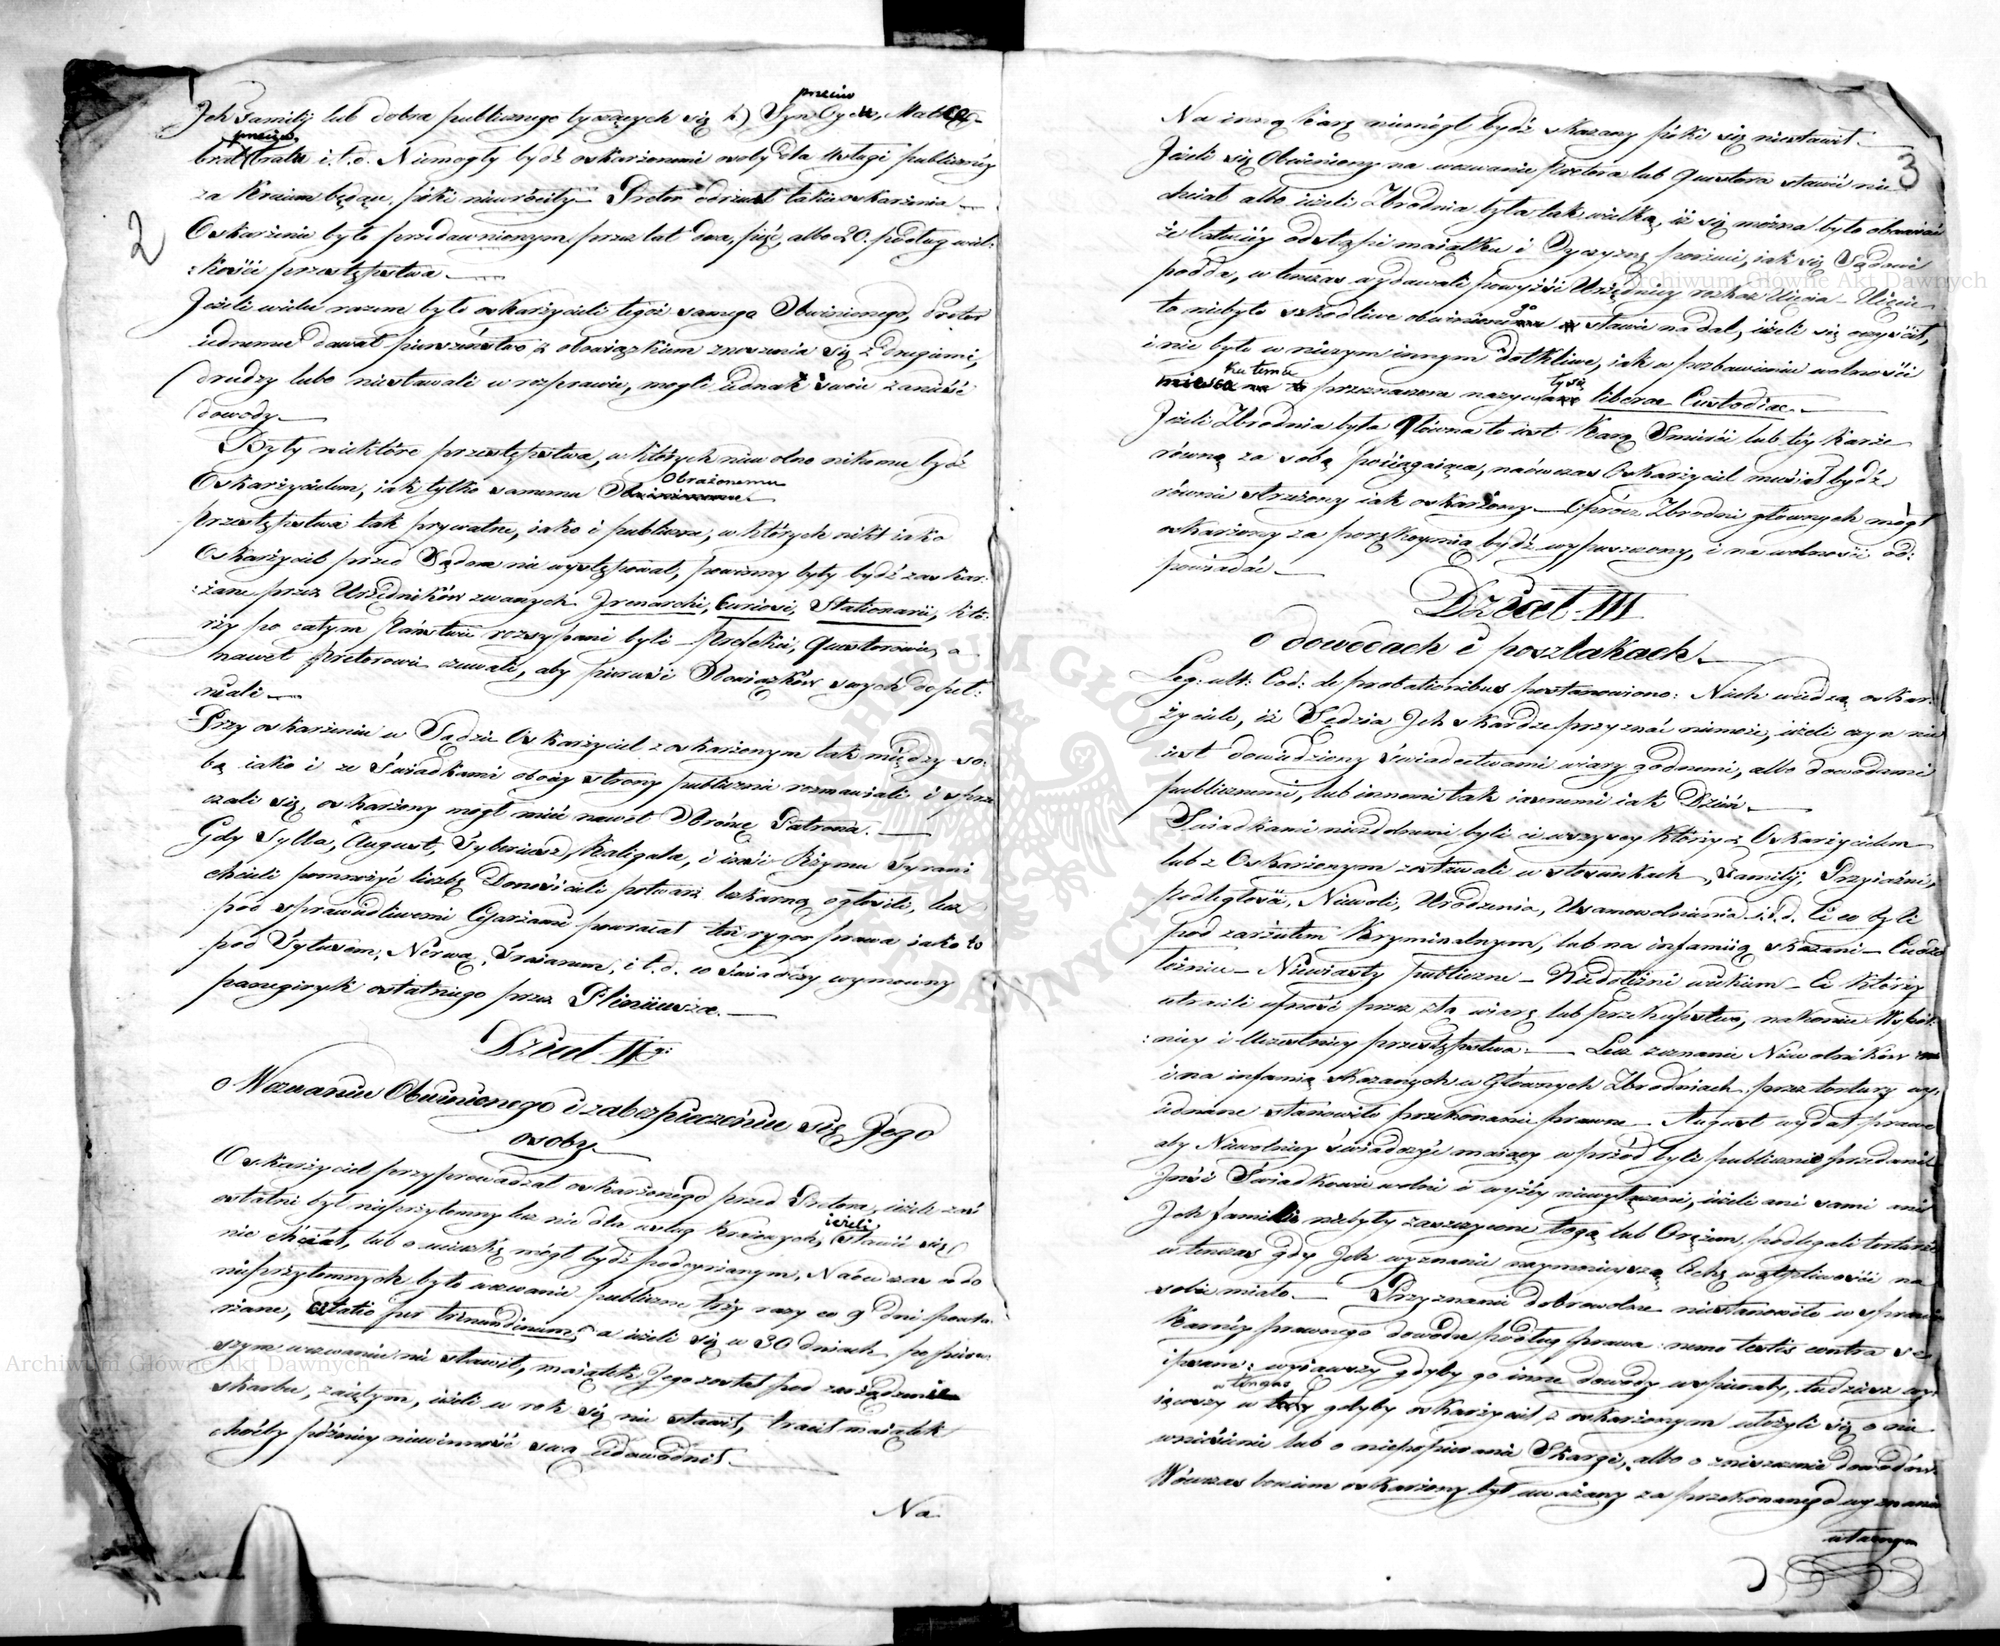 2
Jch Familij lub dobra publicznego tyczących się h) Syn przeciw Oycu, Matce,
brat przeciw bratu i.t.d. Niemogły bydź oskarżonemi osoby dla usługi publiczney
za Kraiem będące, póki niewróciły – Pretor odrzucał takie oskarżenia –
Oskarżenie było przedawnionym przez lat dwa, pięć, albo 20. podług wiel:
:kości przestępstwa. –
Jeżeli wielu razem było oskarżycieli tegoż samego Obwinionego, Pretor
iednemu dawał pierwszeństwo z obowiązkiem znoszenia się z drugiemi,
drudzy lubo niestawali w rozprawie, mogli iednak swoie zanieść
dowody. –
Były niektóre przestępstwa, w których niewolno nikomu bydź
Oskarżycielem, iak tylko samemu Obrażonemu
Przestępstwa tak prywatne, iako i publiczne, w których nikt iako
Oskarżyciel przed Sądem nie występował, powinny były bydź zaskar:
:żane przez Urzędników zwanych Jrenarchi, Curiosi, Stationarii, któ:
rzy po całym Państwie rozsypani byli – Prefekci, Questorowie, a
nawet Pretorowie czuwali, aby pierwsi Obowiązków swych dopeł:
niali –
Przy oskarżeniu w Sądzie Oskarżyciel z oskarżonym tak między so:
bą iako i ze Świadkami oboiey strony publicznie rozmawiali i sprze
czali się, oskarżony mógł mieć nawet Obrońcę Patrona. –
Gdy Sylla, August, Tyberiusz, Kaligula, i inni Rzymu Tyrani
chcieli pomnożyć liczbę Donosicieli potwarz bezkarną ogłosili, lecz
pod sprawiedliwemi Cesarzami powracał ten rygor prawa iako to
pod Tytusem, Nerwą, Traianem, i t.d. co świadczy wymowny
panegiryk ostatniego przez Pliniusza. –
Dział II gi
o Wezwaniu Obwinionego i zabezpieczeniu się Jego
osoby. –
Oskarżyciel przyprowadzał oskarżonego przed Pretora, ieżeli zaś
ostatni był nieprzytomny lecz nie dla usług Kraiowych, ieżeli stawić się
nie chciał, lub o ucieczkę mógł bydź podeyrzanym, Naówczas do
nieprzytomnych było wezwanie publiczne trzy razy co 9 dni powta:
rzane, citatio per trinundinum, a ieżeli się w 30 dniach po pierw:
szym wezwaniu nie stawił, maiątek Jego został pod zarządzenie
skarbu, zaiętym, ieżeli w rok się nie stawił, tracił maiątek
choćby później niewinność swą udowodnił. –
Na
3
Na inną karę niemógł bydź skazany póki się niestawił. –
Jeżeli się Obwiniony na wezwanie Pretora lub Questora stawić nie
chciał albo ieżeli Zbrodnia była tak wielką, iż się można było obawiać
że łatwiéy odstąpi maiątku i Oyczyznę porzuci, iak się Sądowi
podda, w tenczas wydawali powyżsi Urzędnicy rozkaz Uięcia – Uięcie
to niebyło szkodliwe obwinionego sławie nadal, ieżeli się oczyścił,
i nie było w niczym innym dotkliwe, iak w pozbawieniu wolności
ku temu przeznaczone nazywa tych liberae Custodiae. –
Jeżeli Zbrodnia była Główna to iest karę Smierci lub tey karze
równą za sobą pociągaiąca, naówczas Oskarżyciel musiał bydź
równie strzeżony iak oskarżony – Oprócz Zbrodni głównych mógł
oskarżony za poręką bydź wypuszczony, i na wolności od:
powiadać –
Dział III
o dowodach i poszlakach. –
Leg: ult: Cod: de probationibus postanowiono: Niech wiedzą oskar:
życiele, iż Sędzia Jch skardze przyznać niemoże, ieżeli czyn nie
iest dowiedziony świadectwami wiary godnemi, albo dowodami
publicznemi, lub innemi tak iasnemi iak Dzień –
Świadkami niezdolnemi byli ci wszyscy którzy z Oskarżycielem
lub z Oskarżonym zostawali w stosunkach, Familij, Przyiaźni,
podległości, Niewoli, Urodzenia, Usamowolnienia i.t.d. Ci co byli
pod zarzutem Kryminalnym, lub na infamiią skazani – Cudzo
łożnice – Niewiasty publiczne – Niedoletni wiekiem – Ci którzy
utracili ufność przez złą wiarę lub przekupstwo, nakoniec Wspól:
:nicy i Uczestnicy przestępstwa. – Lecz zeznanie Niewolników
i na infamią skazanych w Głównych Zbrodniach przez tortury wy:
iednane stanowiło przekonanie prawne – August wydał prawo
aby Niewolnicy świadczyć maiący wprzód byli publicznie przedani
Jnni Świadkowie wolni i wyżéy niewyłączeni, ieżeli ani sami ani
Jch familie niebyły zaszczycone togą lub Orężem, podlegali torturze
w tenczas gdy Jch wyznanie naymnieyszą Cechę wątpliwości na
sobie miało. – Przyznanie dobrowolne niestanowiło w sprawie
Karnéy prawnego dowodu podług prawa: nemo testis contra se
ipsum: wyiąwszy gdyby go inne dowody wspierały, tudzież wy:
iąwszy w tenczas gdyby oskarżyciel z oskarżonym ułożyli się o nie
wniesienie lub o niepopieranie Skargi, albo o zniszczenie dowodów.
Wówczas bowiem oskarżony był uważany za przekonanego wyznanie
własnym